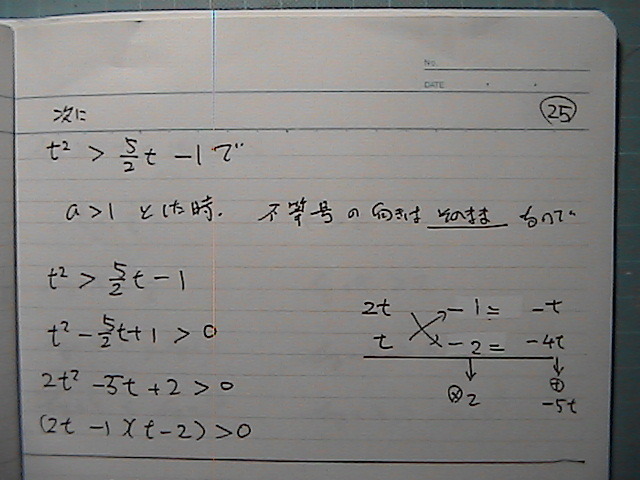 No.
DATE
㉕
次に
t² > 5/2 t - 1 で
a>1 とした時、不等号の向きは そのまま なので
t² > 5/2 t - 1
t² - 5/2 t + 1 > 0
2t² - 5t + 2 > 0
(2t - 1)(t - 2) > 0
2t - 1 = -t
t - 2 = -4t
↓ ↓
⊗2 ⊕
-5t